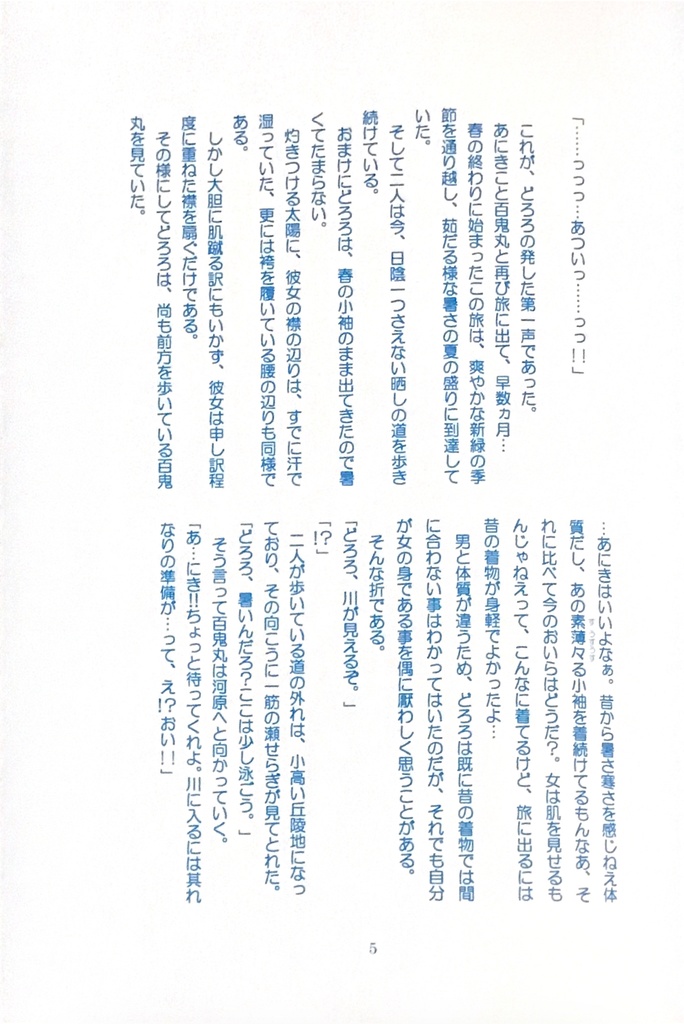 「……っっっ…あついっ……っっ!!」
これが、どろろの発した第一声であった。
あにきこと百鬼丸と再び旅に出て、早数ヵ月…
春の終わりに始まったこの旅は、爽やかな新緑の季
節を通り越し、茹だる様な暑さの夏の盛りに到達して
いた。
そして二人は今、日陰一つさえない晒しの道を歩き
続けている。
おまけにどろろは、春の小袖のまま出てきたので暑
くてたまらない。
灼きつける太陽に、彼女の襟の辺りは、すでに汗で
湿っていた、更には袴を履いている腰の辺りも同様で
ある。
しかし大胆に肌蹴る訳にもいかず、彼女は申し訳程
度に重ねた襟を扇ぐだけである。
その様にしてどろろは、尚も前方を歩いている百鬼
丸を見ていた。
…あにきはいいよなぁ。昔から暑さ寒さを感じねえ体
質だし、あの素薄々る小袖を着続けてるもんなあ、そ
れに比べて今のおいらはどうだ?。女は肌を見せるも
んじゃねえって、こんなに着てるけど、旅に出るには
昔の着物が身軽でよかったよ…
男と体質が違うため、どろろは既に昔の着物では間
に合わない事はわかってはいたのだが、それでも自分
が女の身である事を偶に厭わしく思うことがある。
そんな折である。
「どろろ、川が見えるぞ。」
「!?」
二人が歩いている道の外れは、小高い丘陵地になっ
ており、その向こうに一筋の瀬せらぎが見てとれた。
「どろろ、暑いんだろ?ここは少し泳ごう。」
そう言って百鬼丸は河原へと向かっていく。
「あ…にき!!ちょっと待ってくれよ。川に入るには其れ
なりの準備が…って、え!?おい!!」
5